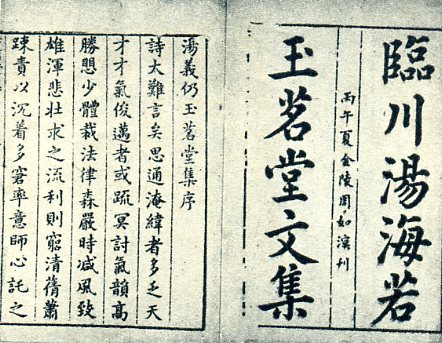 臨川湯海若
丙午夏金陵周如溟刊
玉茗堂文集
湯義仍玉茗堂集序
詩大難言矣思通淹緯者多乏天
才才氣俊邁者或疏冥討氣韻高
勝愳少體裁法律森嚴時減風致
雄渾悲壯求之流利則窮清蒨蕭
踈貴以沉着多窘率意師心託之